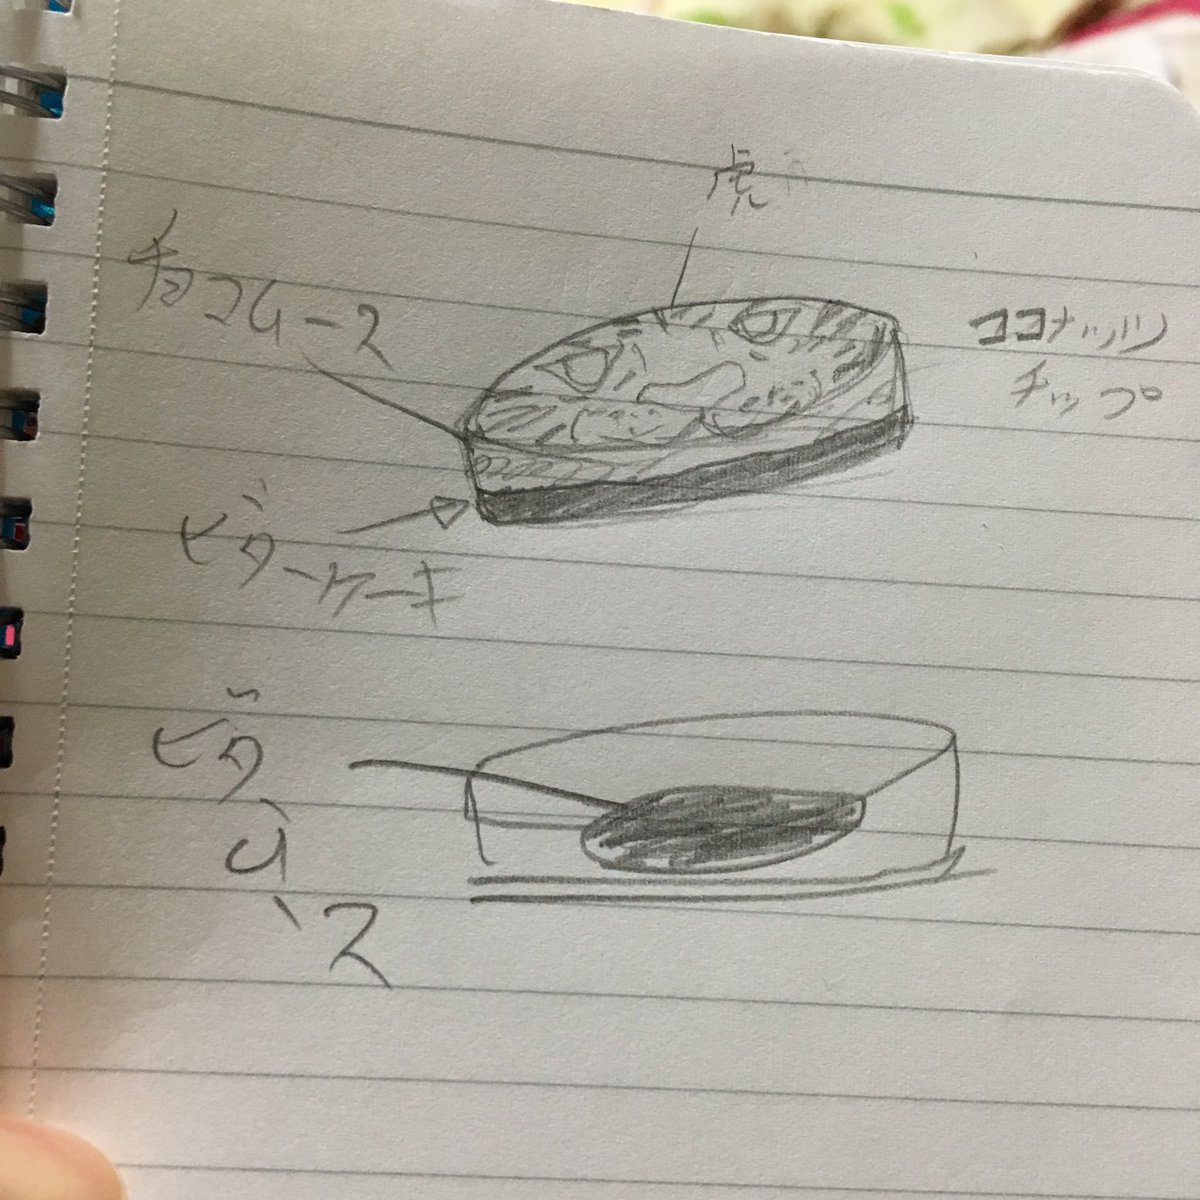 虎
チョコムース
ココナッツ
チップ
ビターケーキ
ビター
ムース